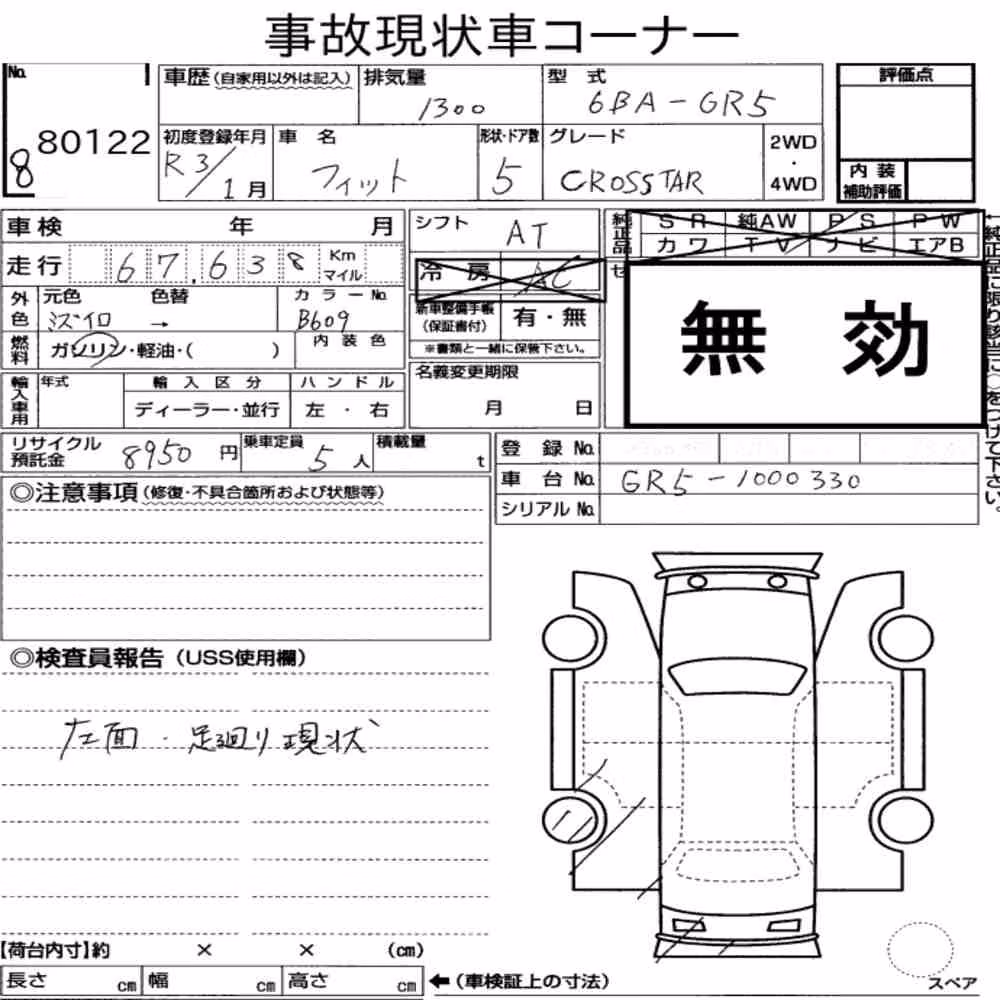 事故現状車コーナー
No. 8 80122
車歴(自家用以外は記入)
排気量 1300
型式 6BA-GR5
初度登録年月 R3/1月
車名 フィット
形状・ドア数 5
グレード CROSSTAR
2WD・4WD
評価点
内装補助評価
車検 年 月
走行 67,638 Km マイル
外色 元色 ミズイロ → 色替
カラーNo. B609
燃料 ガソリン・軽油・( )
内装色
輸入車用 年式
輸入区分 ディーラー・並行
ハンドル 左・右
シフト AT
冷房 AC
新車整備手帳(保証書付) 有・無
※書類と一緒に保管下さい。
名義変更期限 月 日
純正品 SR 純AW PS PW
カワ TV ナビ エアB
セ
無効
←純正品に限り該当に○をつけて下さい。
リサイクル預託金 8950円
乗車定員 5人
積載量 t
登録No.
車台No. GR5-1000330
シリアルNo.
◎注意事項(修復・不具合箇所および状態等)
◎検査員報告(USS使用欄)
左面・足廻り現状
【荷台内寸】約 × × (cm)
長さ cm 幅 cm 高さ cm
←(車検証上の寸法)
スペア